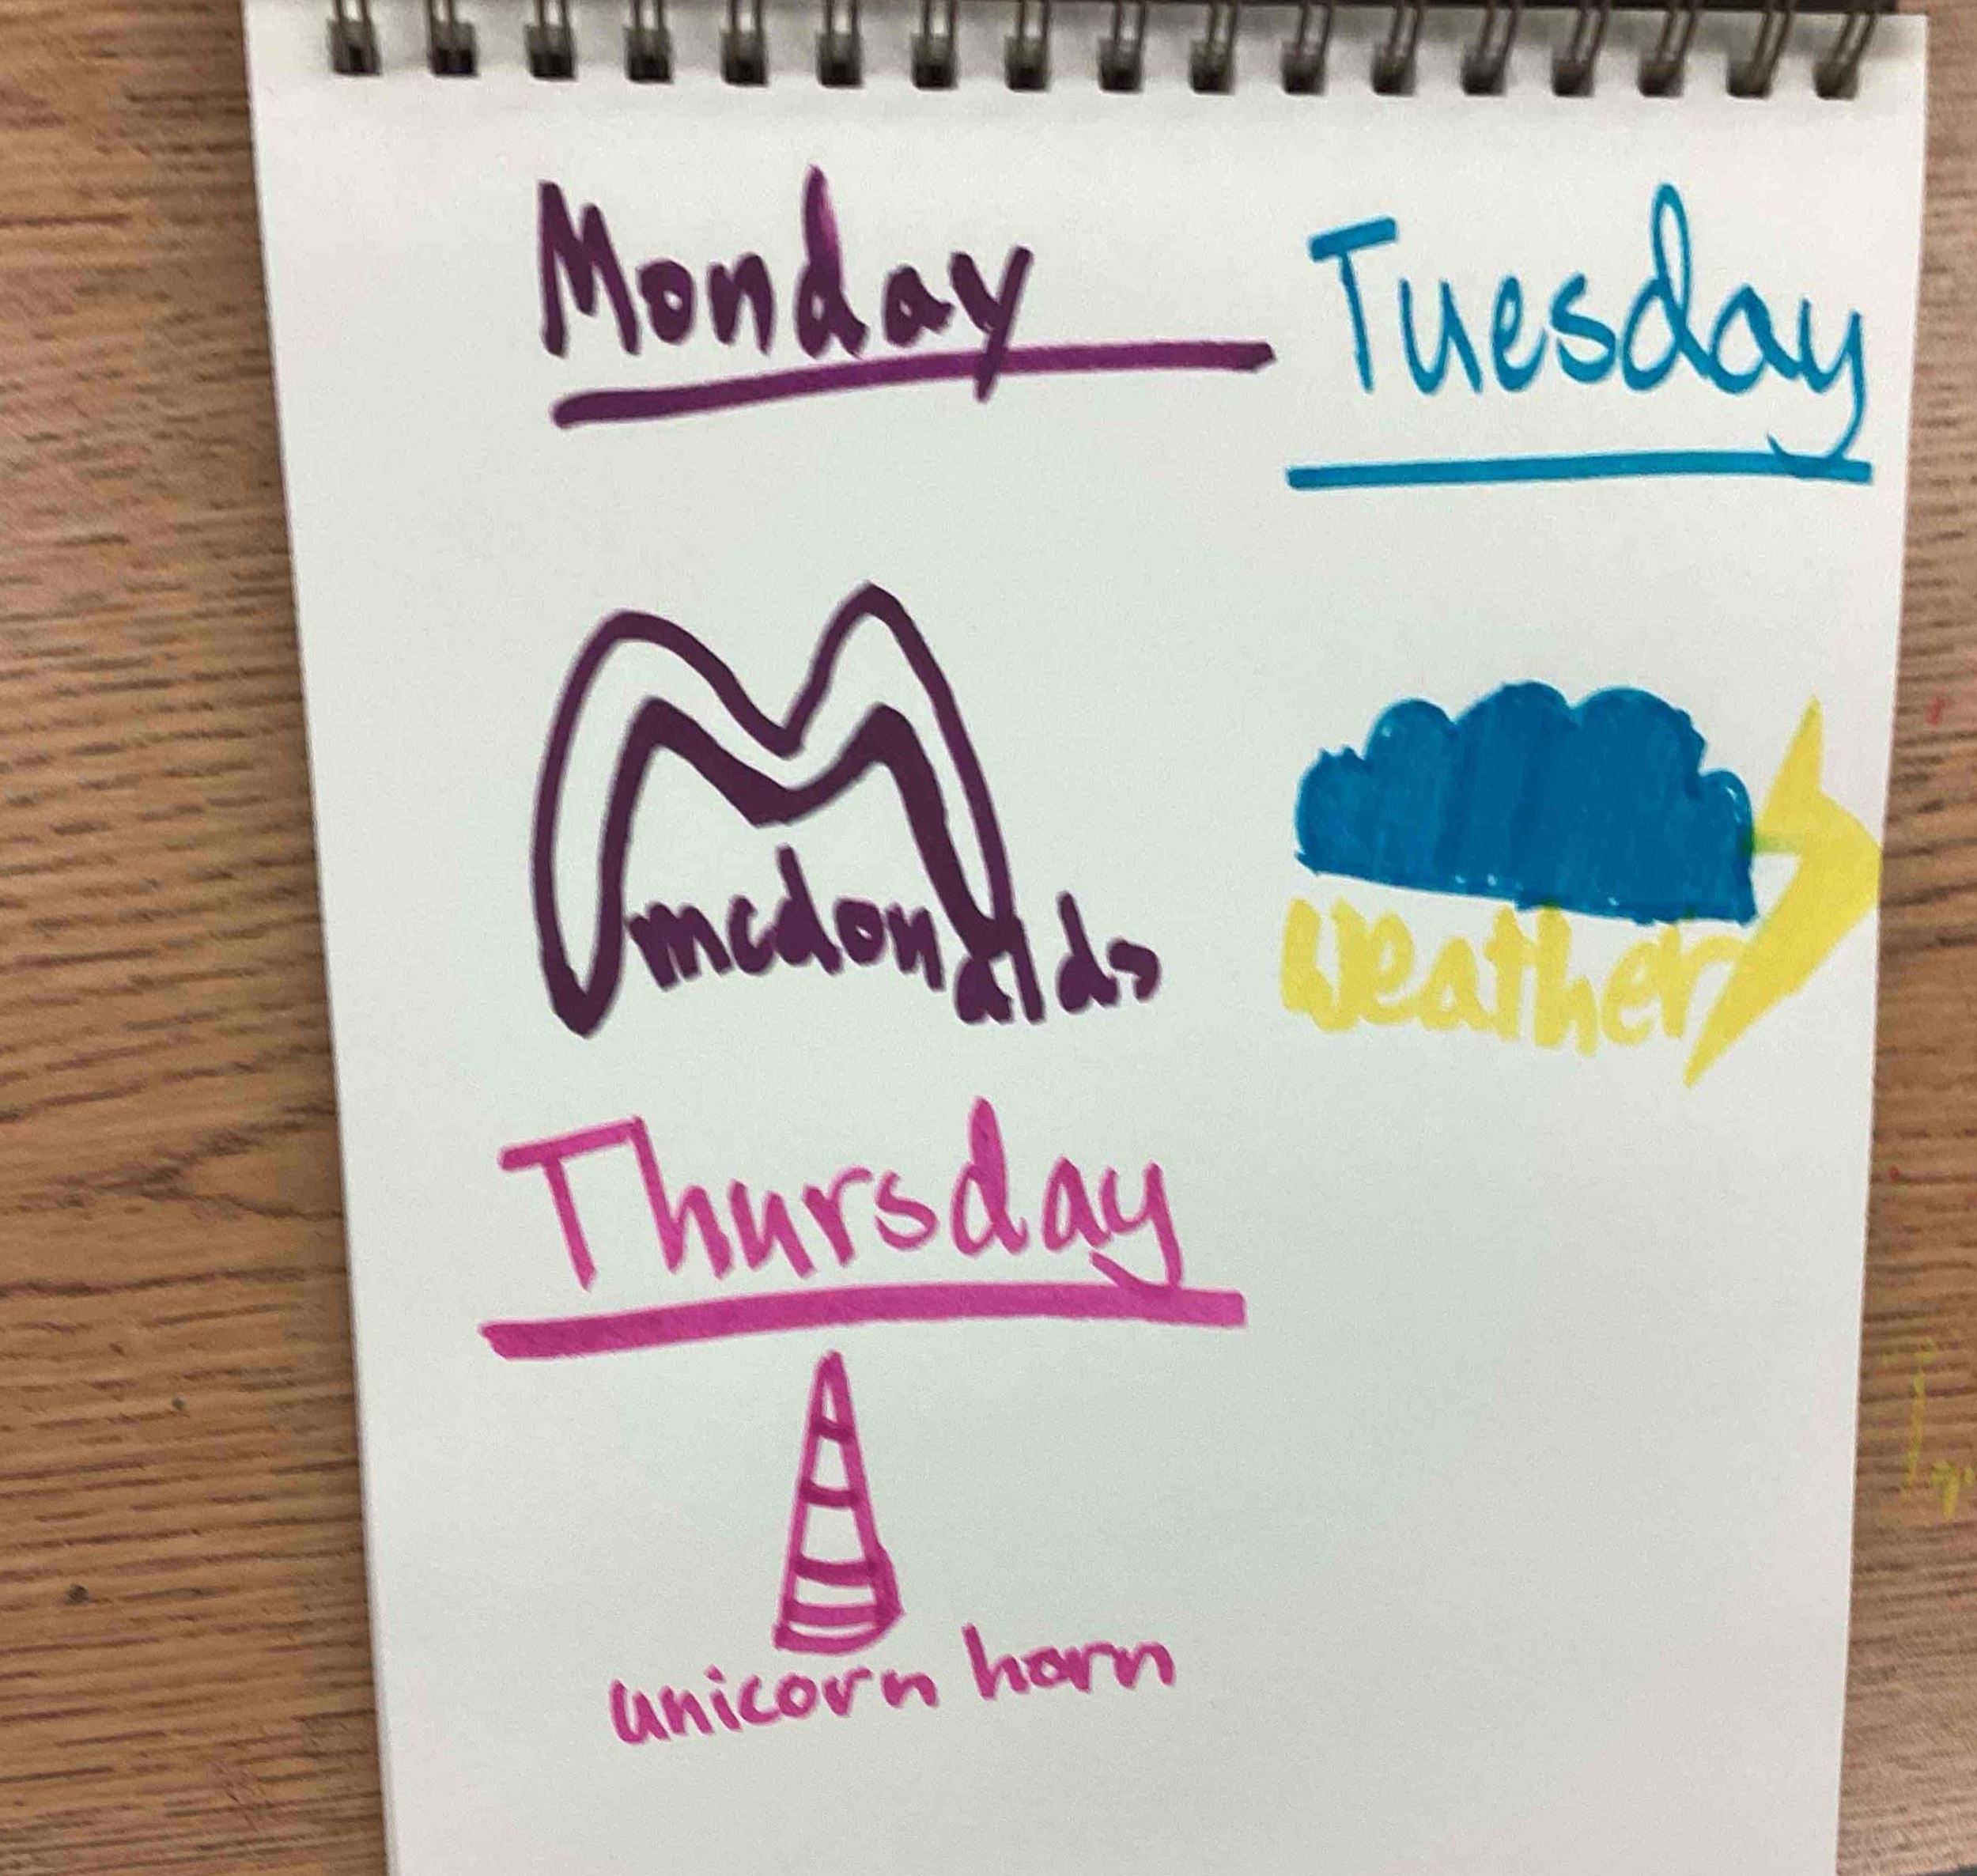 Monday
Tuesday
mcdonalds
Weather
Thursday
unicorn horn